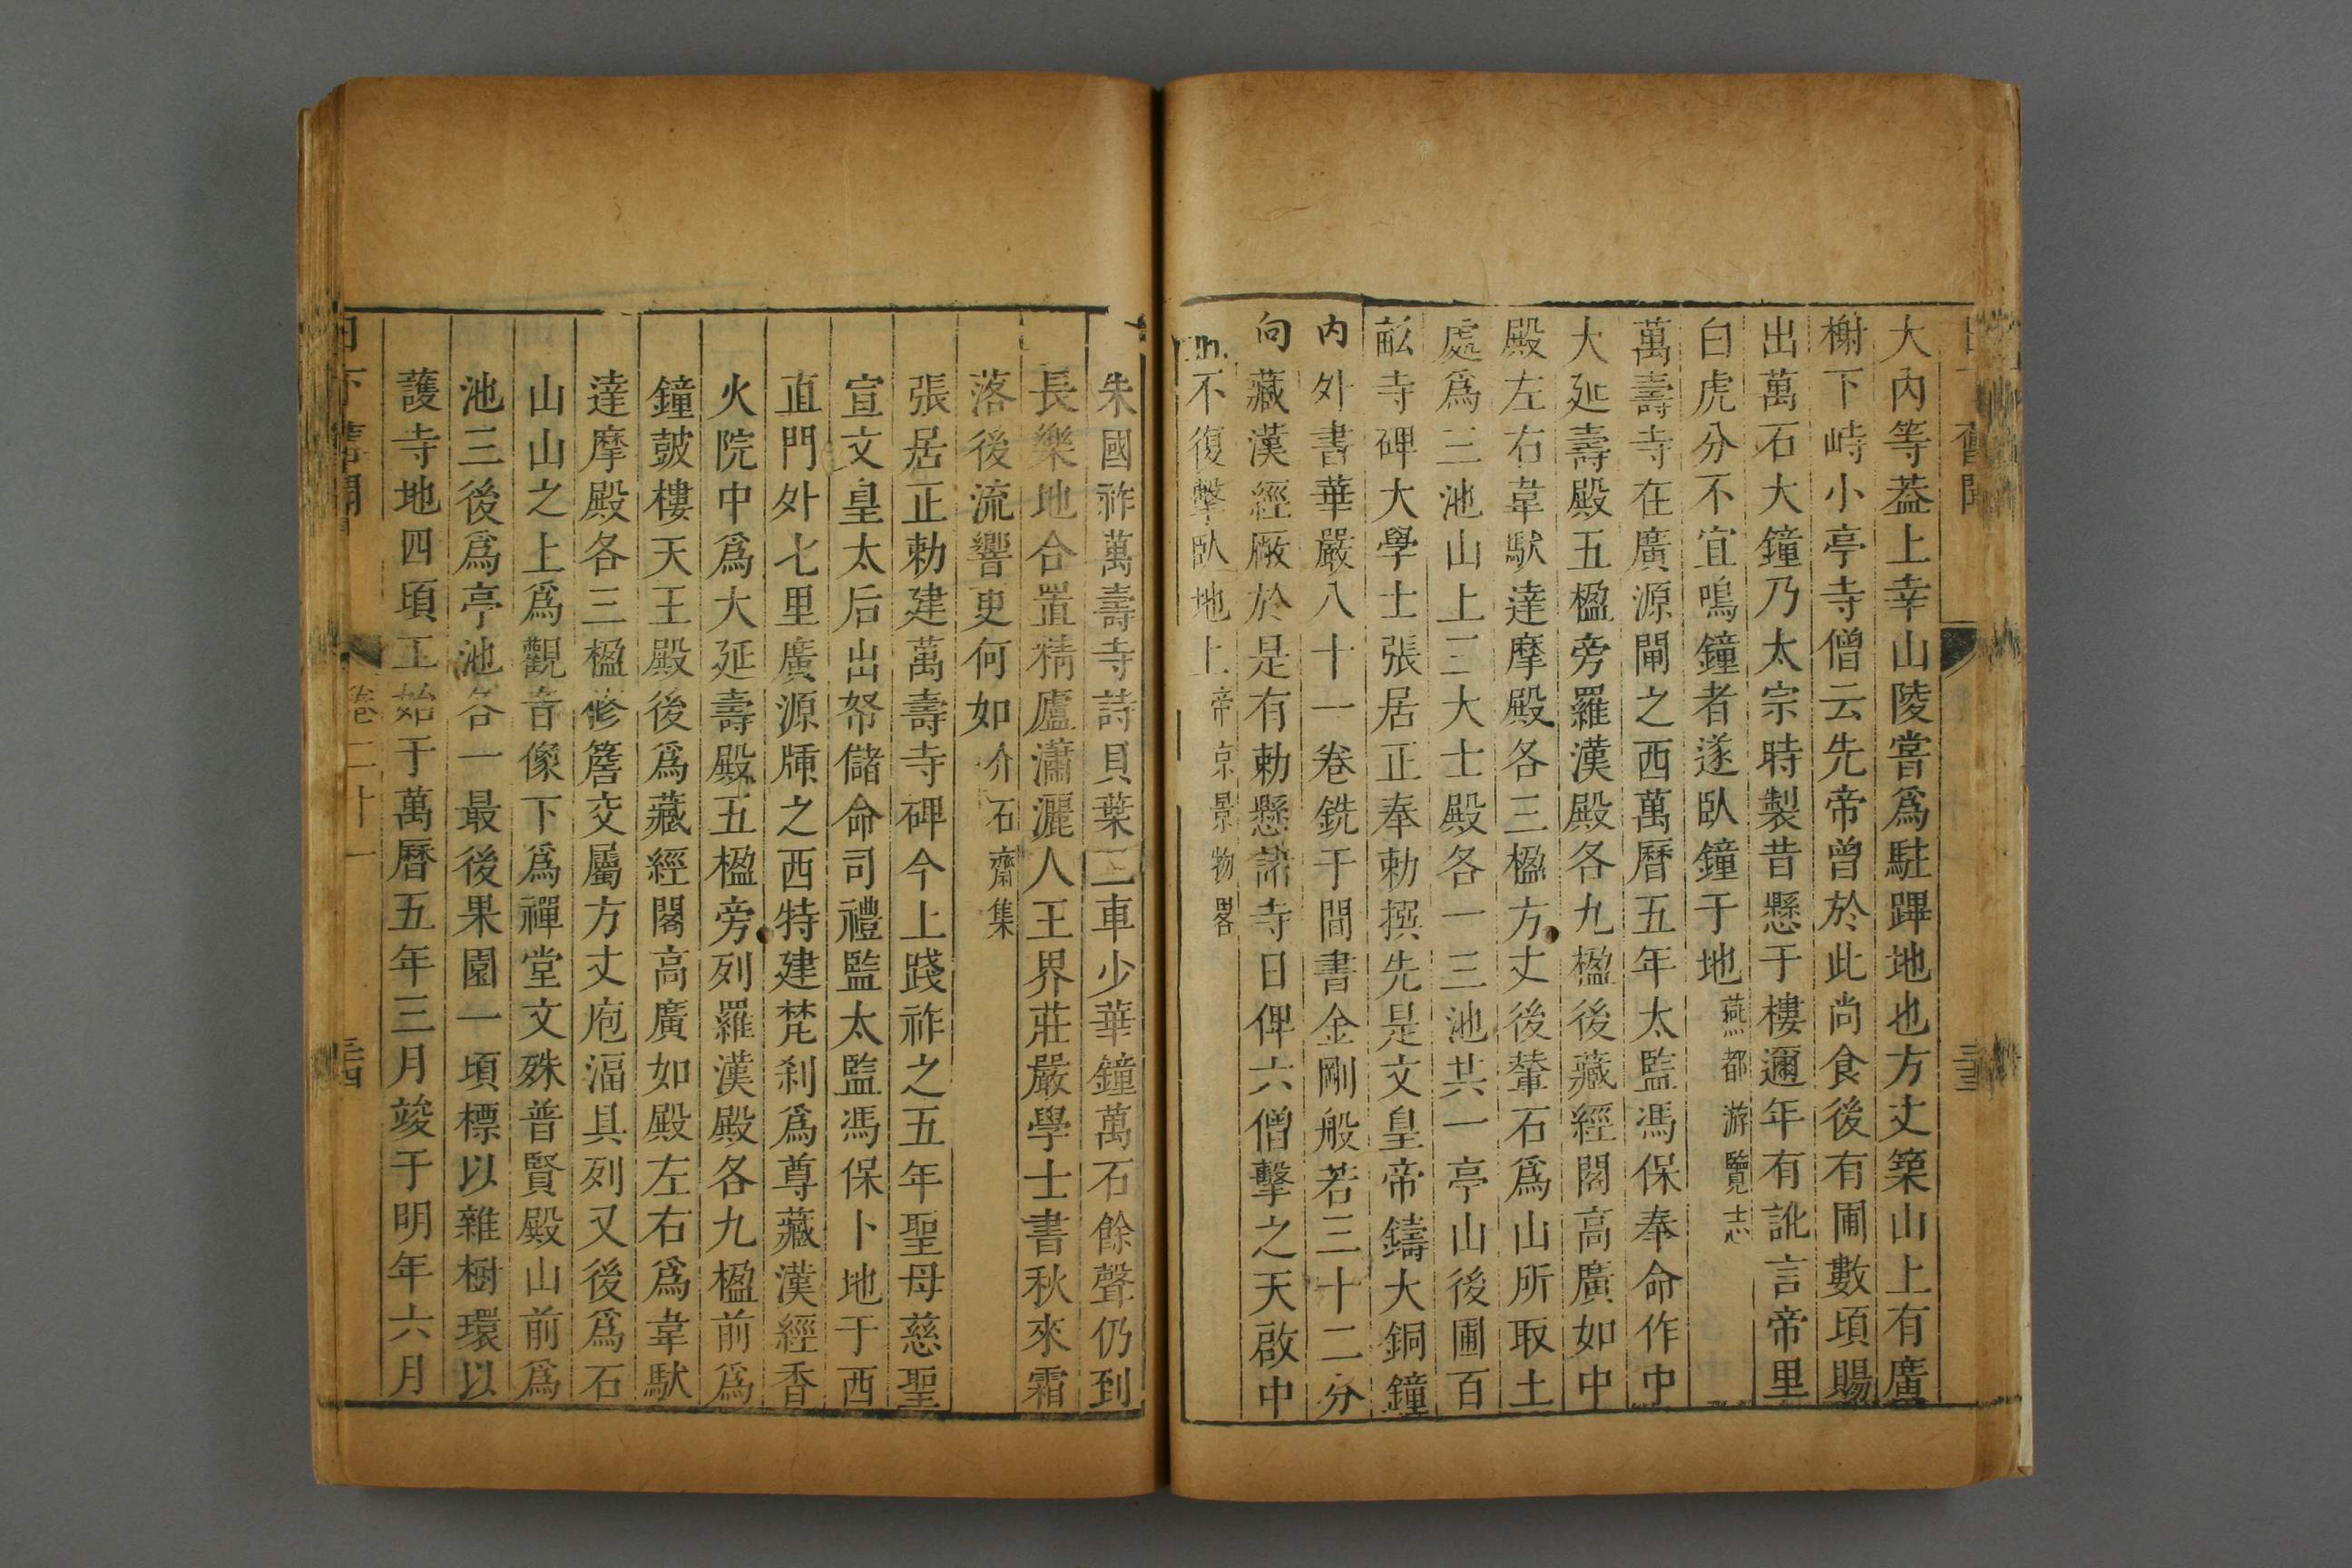 舊聞
三三
大內等葢上幸山陵嘗爲駐蹕地也方丈築山上有廣
榭下峙小亭寺僧云先帝曾於此尚食後有圃數頃賜
出萬石大鐘乃太宗時製昔懸于樓邇年有訛言帝里
白虎分不宜鳴鐘者遂臥鐘于地燕都游覽志
萬壽寺在廣源閘之西萬曆五年太監馮保奉命作中
大延壽殿五楹旁羅漢殿各九楹後藏經閣高廣如中
殿左右韋馱達摩殿各三楹方丈後輦石爲山所取土
處爲三池山上三大士殿各一三池共一亭山後圃百
畝寺碑大學士張居正奉勅撰先是文皇帝鑄大銅鐘
內外書華嚴八十一卷銑于間書金剛般若三十二分
向藏漢經厰於是有勅懸諸寺日俾六僧擊之天啟中
不復擊臥地上帝京景物畧
朱國祚萬壽寺詩貝葉三車少華鐘萬石餘聲仍到
長樂地合置精廬瀟灑人王界莊嚴學士書秋來霜
落後流響更何如介石齋集
張居正勅建萬壽寺碑今上踐祚之五年聖母慈聖
宣文皇太后出帑儲命司禮監太監馮保卜地于西
直門外七里廣源牐之西特建梵剎爲尊藏漢經香
火院中爲大延壽殿五楹旁列羅漢殿各九楹前爲
鐘鼓樓天王殿後爲藏經閣高廣如殿左右爲韋馱
達摩殿各三楹修簷交屬方丈庖湢具列又後爲石
山山之上爲觀音像下爲禪堂文殊普賢殿山前爲
池三後爲亭池各一最後果園一頃標以雜樹環以
護寺地四頃工始于萬曆五年三月竣于明年六月
日下舊聞
卷二十一
三四